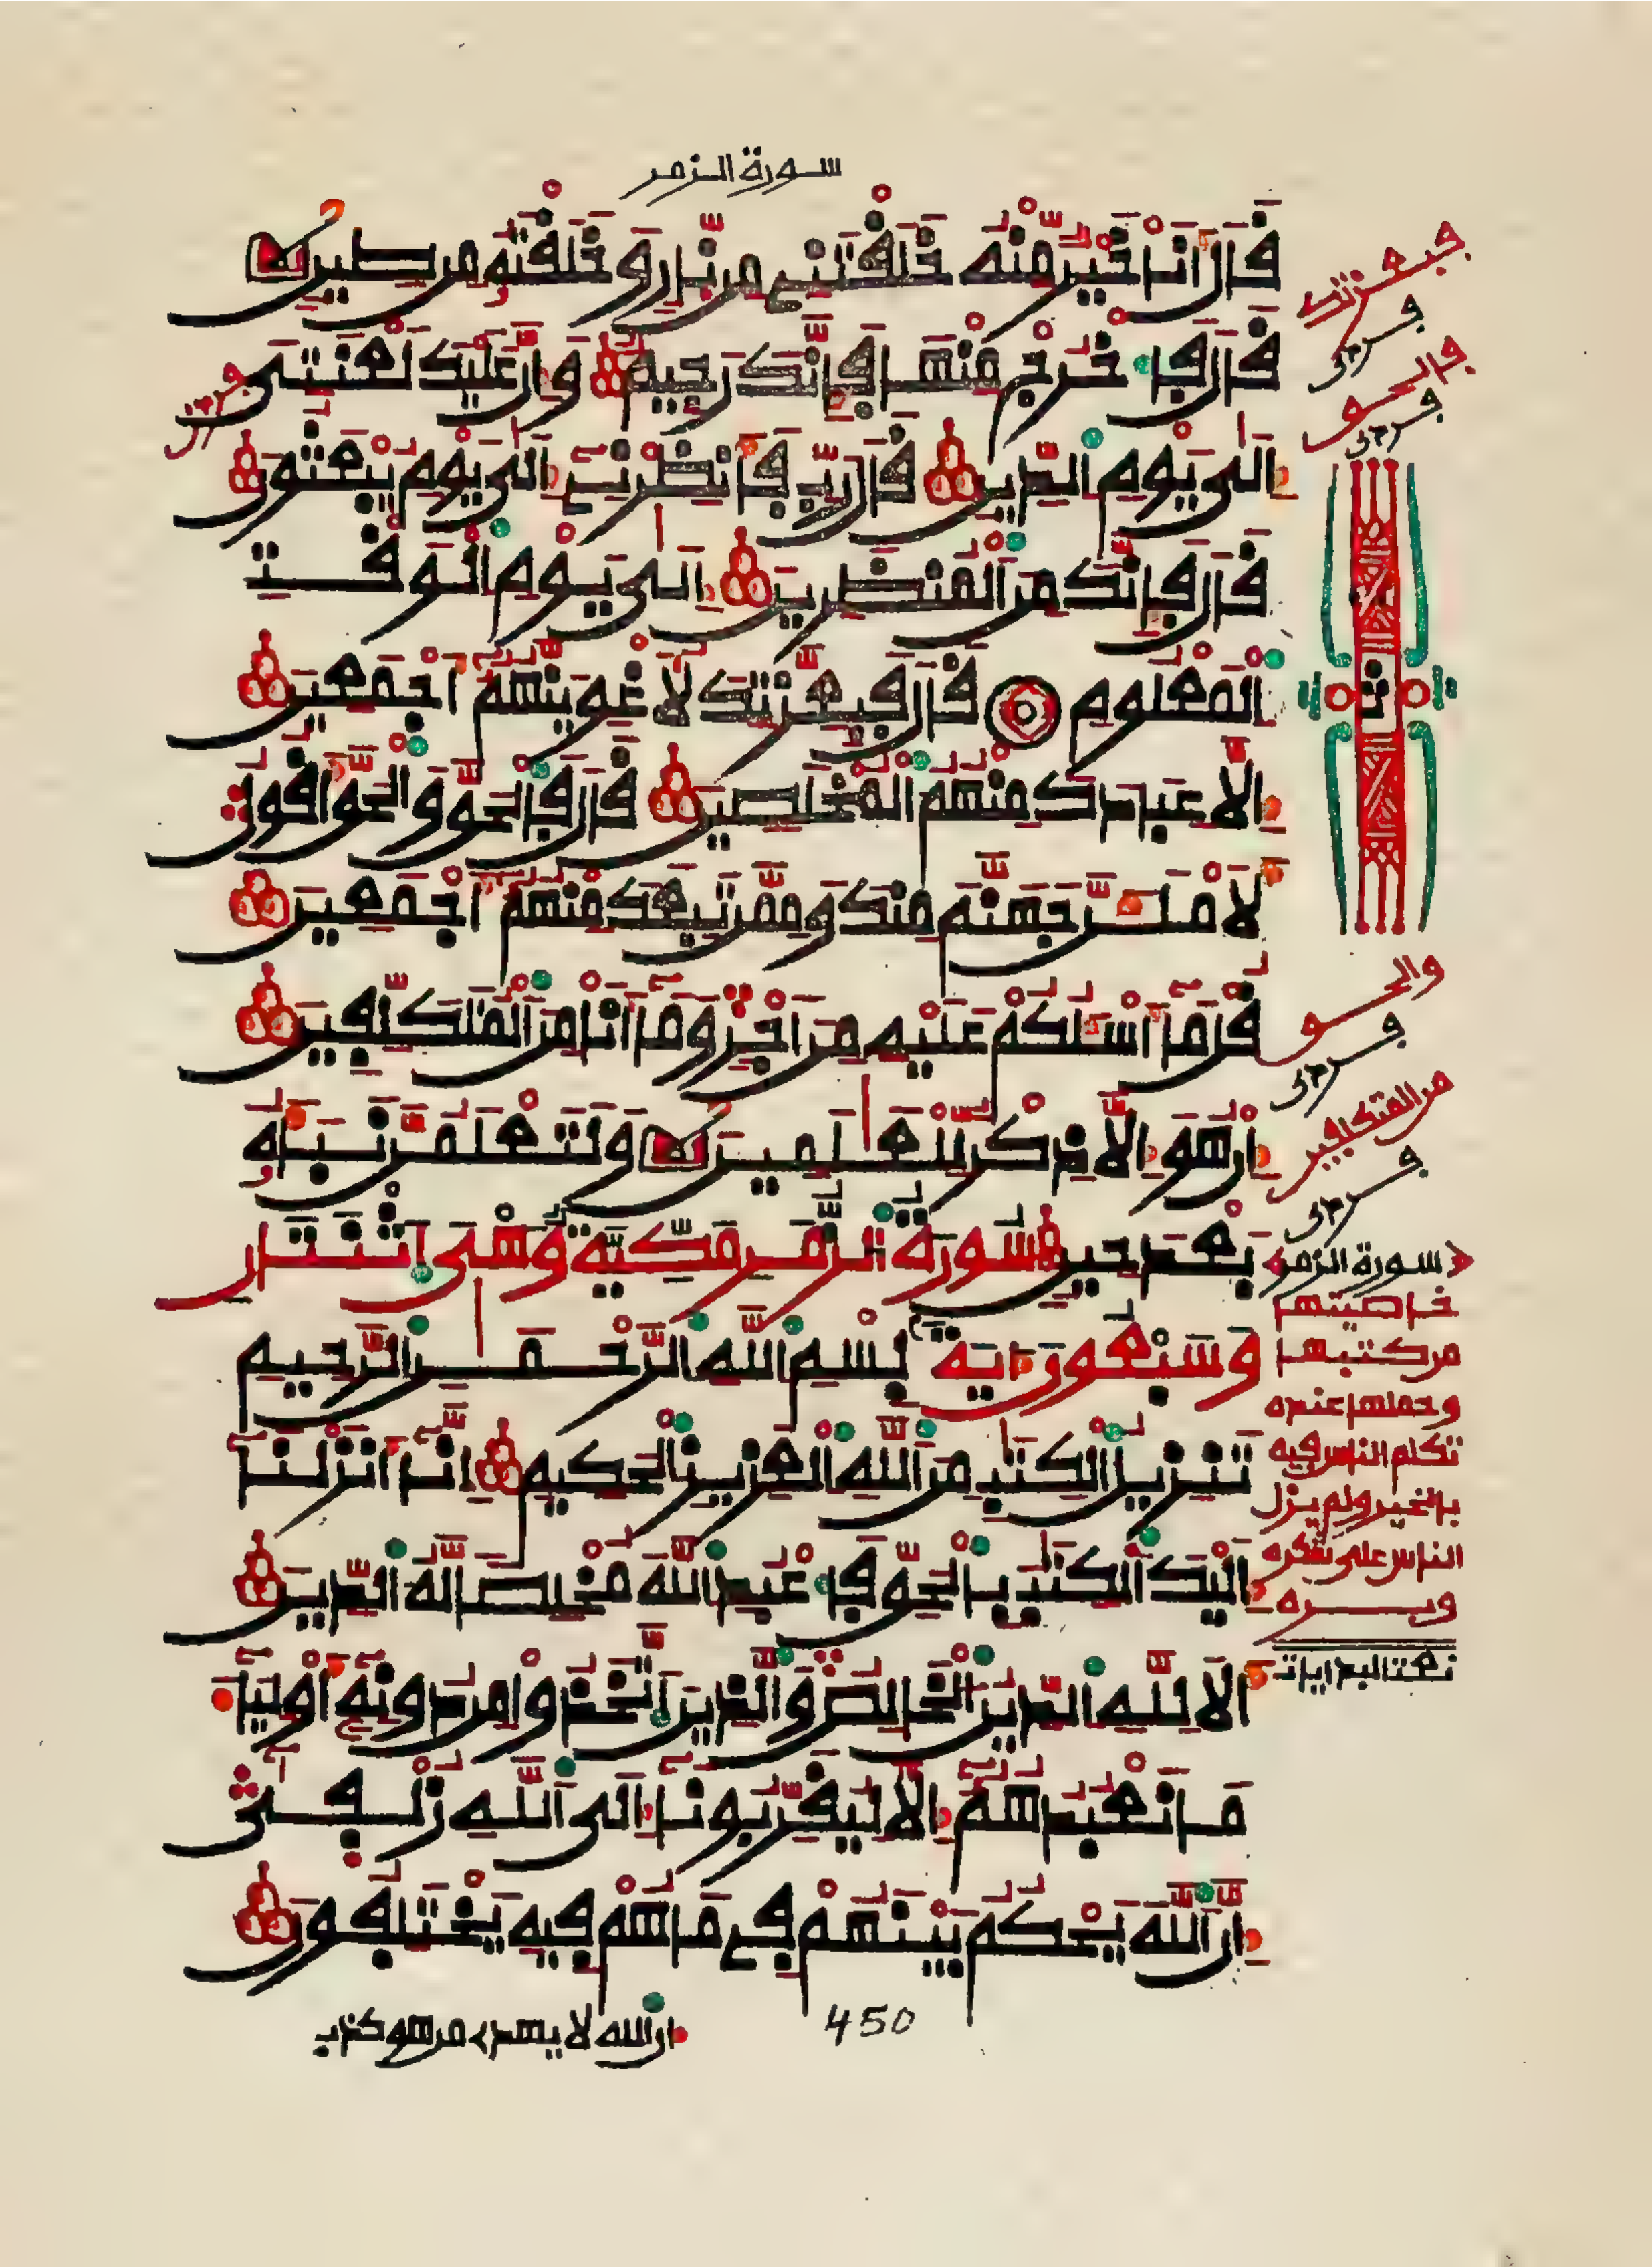 سورة الزمر
قَالَ أَنَا خَيْرٌ مِّنْهُ خَلَقْتَنِي مِن نَّارٍ وَخَلَقْتَهُ مِن طِينٍ
قَالَ فَاخْرُجْ مِنْهَا فَإِنَّكَ رَجِيمٌ وَإِنَّ عَلَيْكَ لَعْنَتِي
إِلَى يَوْمِ الدِّينِ قَالَ رَبِّ فَأَنظِرْنِي إِلَى يَوْمِ يُبْعَثُونَ
قَالَ فَإِنَّكَ مِنَ الْمُنظَرِينَ إِلَى يَوْمِ الْوَقْتِ
الْمَعْلُومِ قَالَ فَبِعِزَّتِكَ لَأُغْوِيَنَّهُمْ أَجْمَعِينَ
إِلَّا عِبَادَكَ مِنْهُمُ الْمُخْلَصِينَ قَالَ فَالْحَقَّ وَالْحَقَّ أَقُولُ
لَأَمْلَأَنَّ جَهَنَّمَ مِنكَ وَمِمَّن تَبِعَكَ مِنْهُمْ أَجْمَعِينَ
قُلْ مَا أَسْـَٔلُكُمْ عَلَيْهِ مِنْ أَجْرٍ وَمَا أَنَا مِنَ الْمُتَكَلِّفِينَ
إِنْ هُوَ إِلَّا ذِكْرٌ لِّلْعَٰلَمِينَ وَلَتَعْلَمُنَّ نَبَأَهُ
بَعْدَ حِينٍ سُورَةُ الزُّمَرِ مَكِّيَّةٌ وَهْيَ اثْنَتَانِ
وَسَبْعُونَ ءَايَةً بِسْمِ اللَّهِ الرَّحْمَٰنِ الرَّحِيمِ
تَنزِيلُ الْكِتَٰبِ مِنَ اللَّهِ الْعَزِيزِ الْحَكِيمِ إِنَّا أَنزَلْنَا
إِلَيْكَ الْكِتَٰبَ بِالْحَقِّ فَاعْبُدِ اللَّهَ مُخْلِصًا لَّهُ الدِّينَ
أَلَا لِلَّهِ الدِّينُ الْخَالِصُ وَالَّذِينَ اتَّخَذُوا مِن دُونِهِ أَوْلِيَاءَ
مَا نَعْبُدُهُمْ إِلَّا لِيُقَرِّبُونَا إِلَى اللَّهِ زُلْفَىٰ
إِنَّ اللَّهَ يَحْكُمُ بَيْنَهُمْ فِي مَا هُمْ فِيهِ يَخْتَلِفُونَ
450
إن الله لا يهدي من هو كذب
فبعزتك
فالحق
ثمن
والحق
من المتكلفين
سورة الزمر
خاصيتها
من كتبها
وحملها عنده
تكلم الناس فيه
بالخير ولم يزل
الناس على شكره
وبره